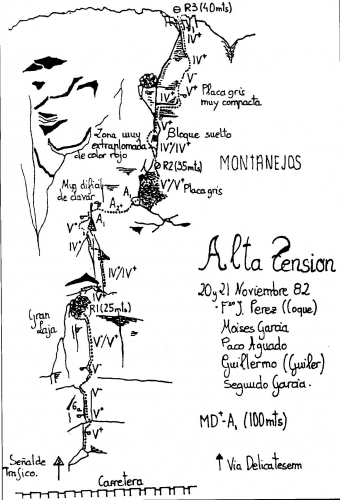 R3 (40mts)
IV+
V+
IV+
V-
Placa gris
muy compacta
IV+
V+
Zona muy
extraplomada
de color rojo
Bloque suelto
IV/IV+
R2 (35mts)
MONTANEJOS
Muy dificil
de clavar
A1
V/V+
Placa gris
A2+
A1
V+
IV+
IV/IV+
IV
R1 (25mts)
Gran
Laja
V/V+
V-
6a
V+
Señal de
Trafico.
Carretera
Alta Tension
20 y 21 Noviembre 82
- Fco J. Perez (Coque)
Moises Garcia
Paco Aguado
Guillermo (Guiler)
Segundo Garcia.
MD+-A1 (100mts)
↑ Via Delicatesem